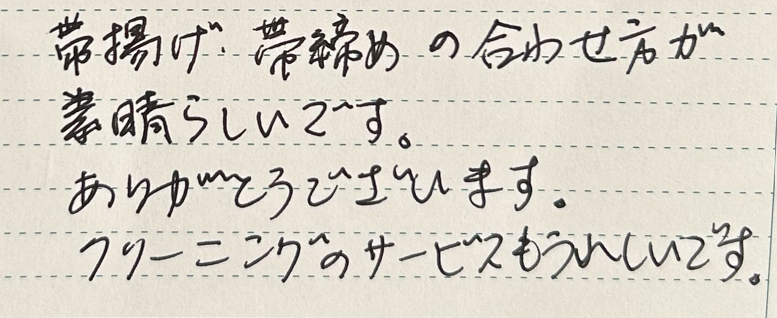 帯揚げ・帯締めの合わせ方が
素晴らしいです。
ありがとうございます。
クリーニングのサービスもうれしいです。